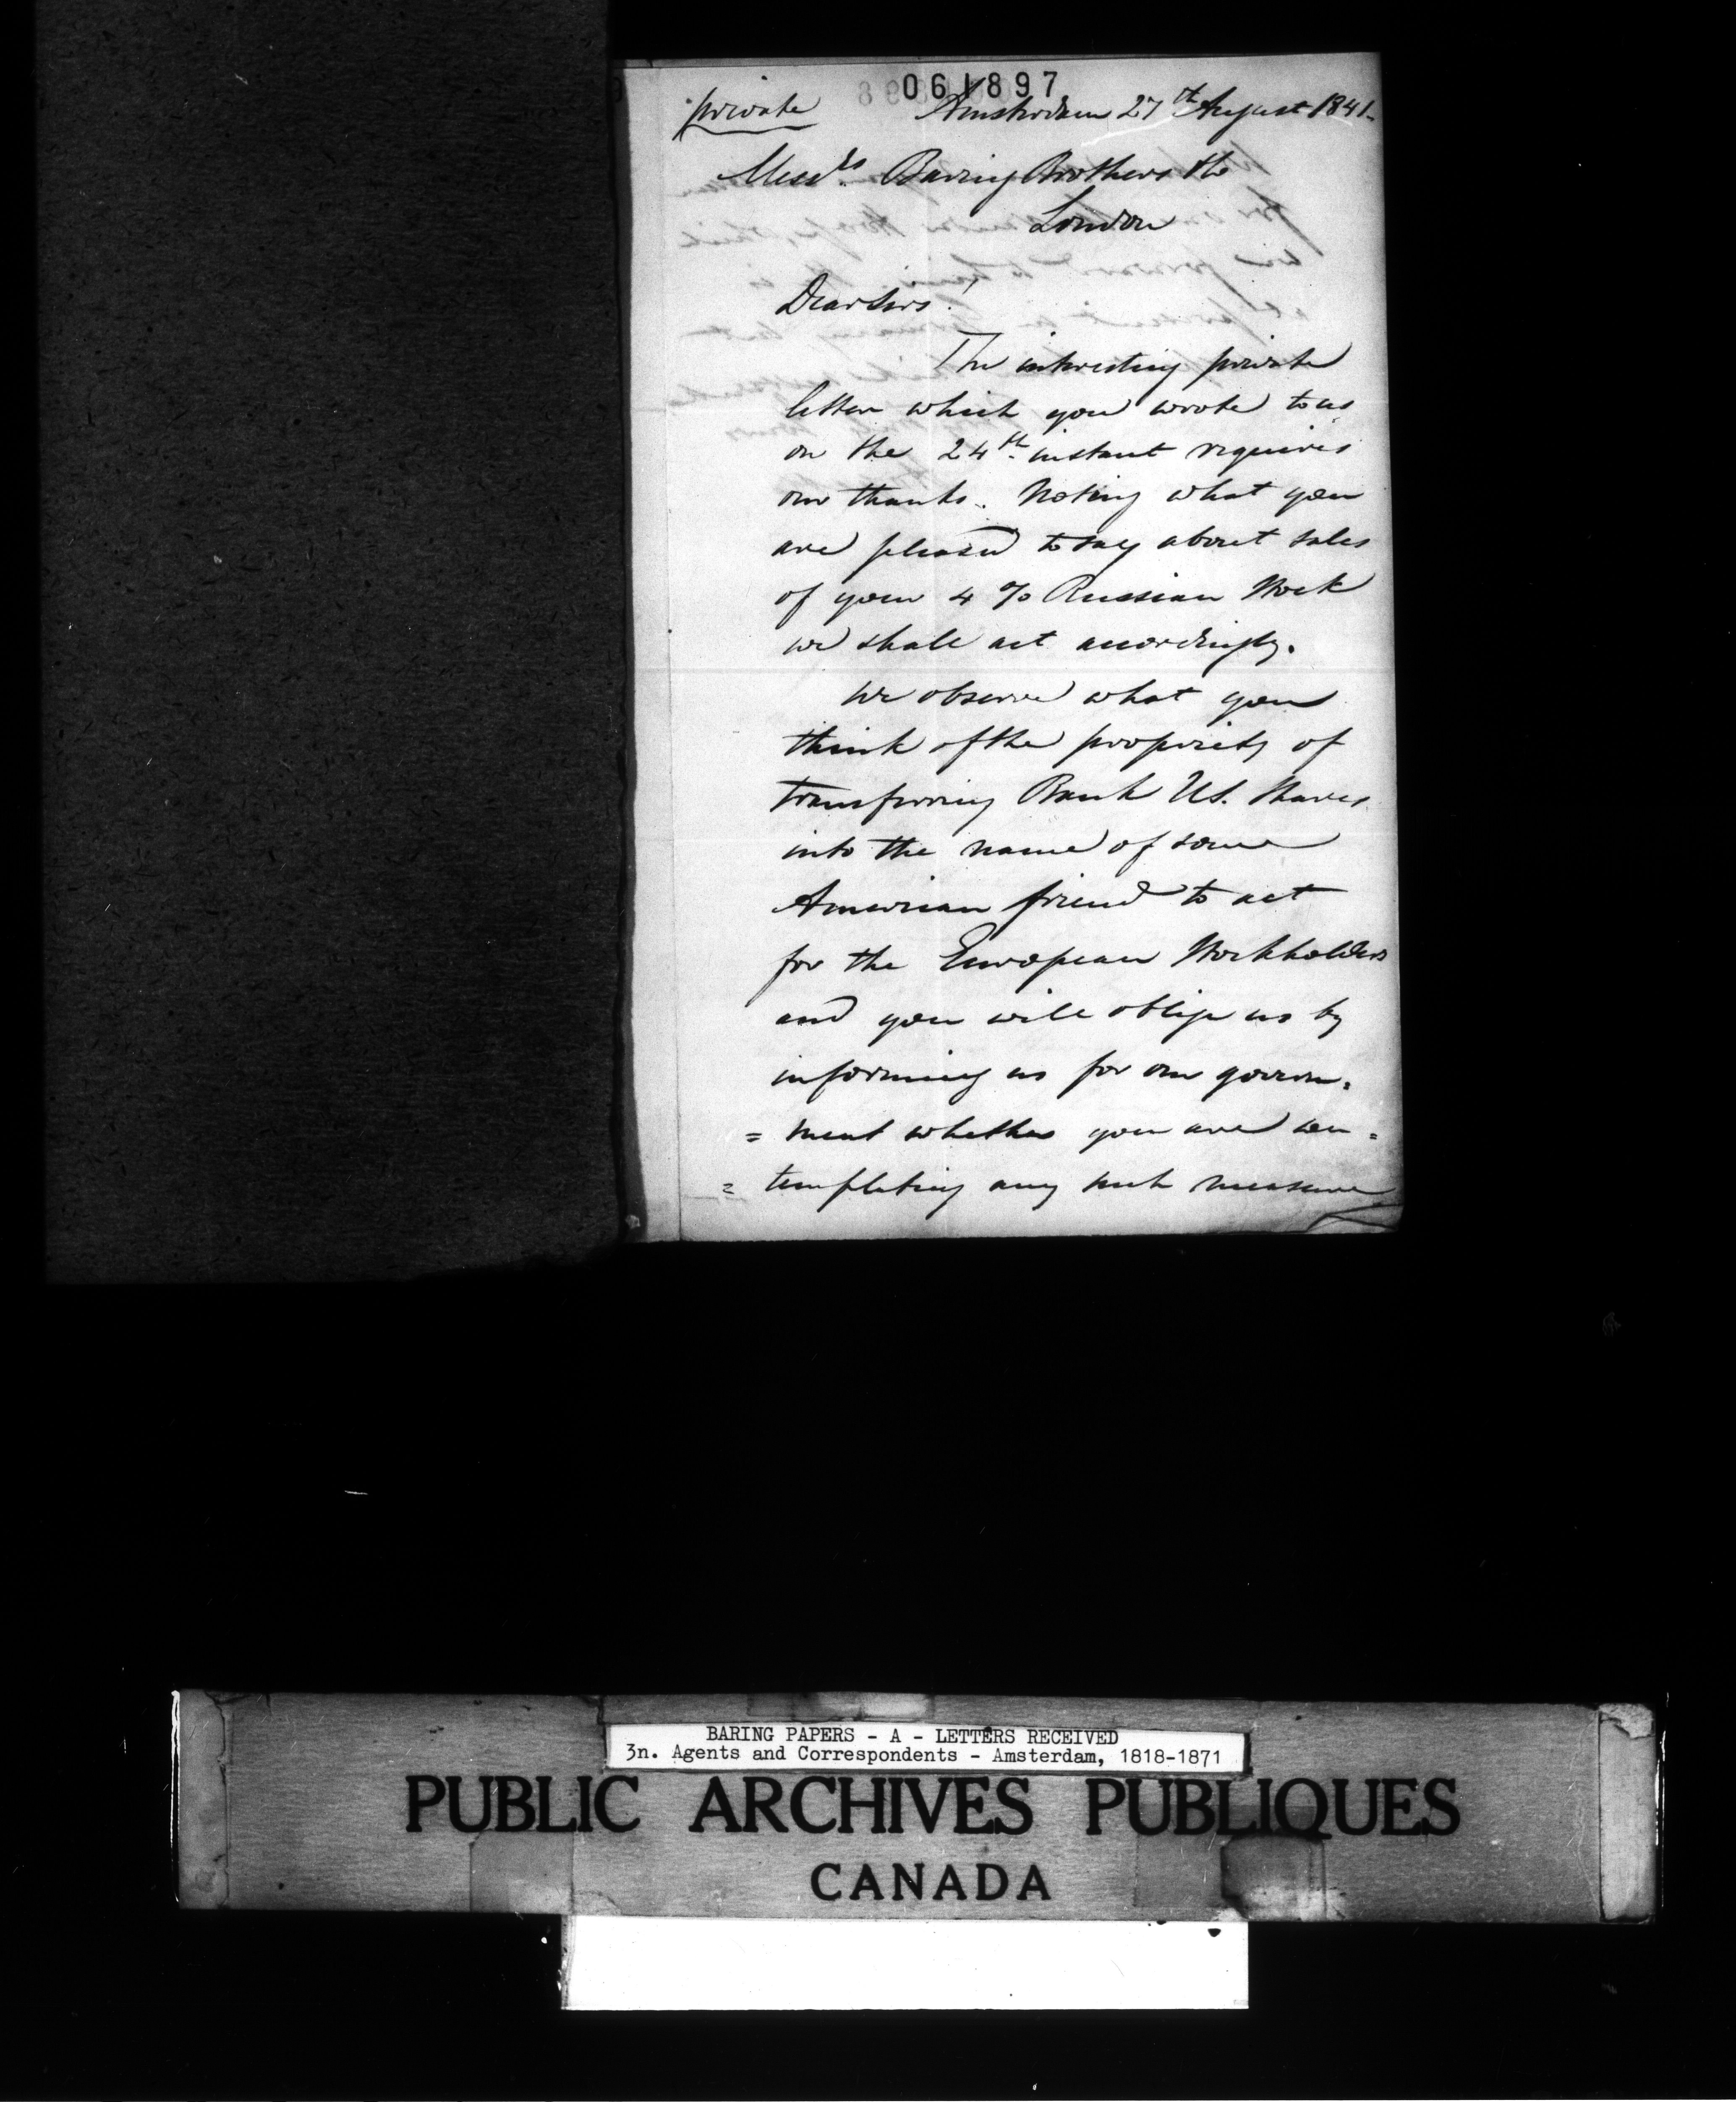 061897
private Amsterdam 27th August 1841.
Messrs. Baring Brothers & Co
London
Dear Sirs!
The interesting private
letter which you wrote to us
on the 24th. instant requires
our thanks. Noting what you
are pleased to say about sales
of your 4 % Russian Stock
we shall act accordingly.
We observe what you
think of the propriety of
transferring Bank U.S. Shares
into the name of some
American friend to act
for the European Stockholders
and you will oblige us by
informing us for our govern=
=ment whether you are con=
=templating any such measure
BARING PAPERS - A - LETTERS RECEIVED
3n. Agents and Correspondents - Amsterdam, 1818-1871
PUBLIC ARCHIVES PUBLIQUES
CANADA